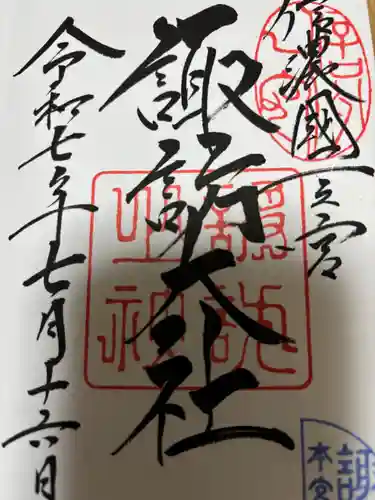 信濃國一之宮
諏訪大社
令和七年七月十六日
本宮